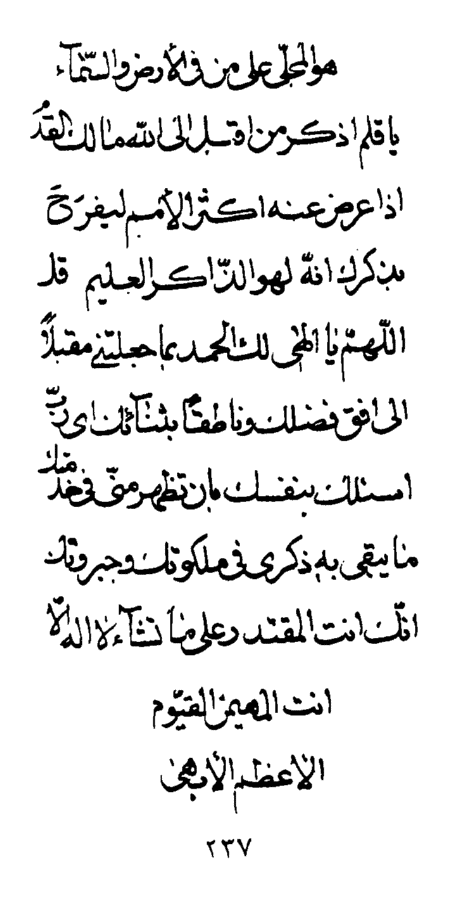 هو المجلّی علی من فی الأرض والسّمآء
یا قلم اذکر من اقبل الی الله مالك القدم
اذ اعرض عنه اکثر الأمم لیفرح
بذکرك انّه لهو الذّاکر العلیم قل
اللّهمّ یا الهی لك الحمد بما جعلتنی مقبلاً
الی افق فضلك و ناطقاً بثنآئك ای ربّ
اسئلك بنفسك بان تظهر منّی فی خدمتك
ما یبقی به ذکری فی ملکوتك و جبروتك
انّك انت المقتدر علی ما تشآء لا اله الّا
انت المهیمن القیّوم
الاعظم الأبهی
٢٣٧